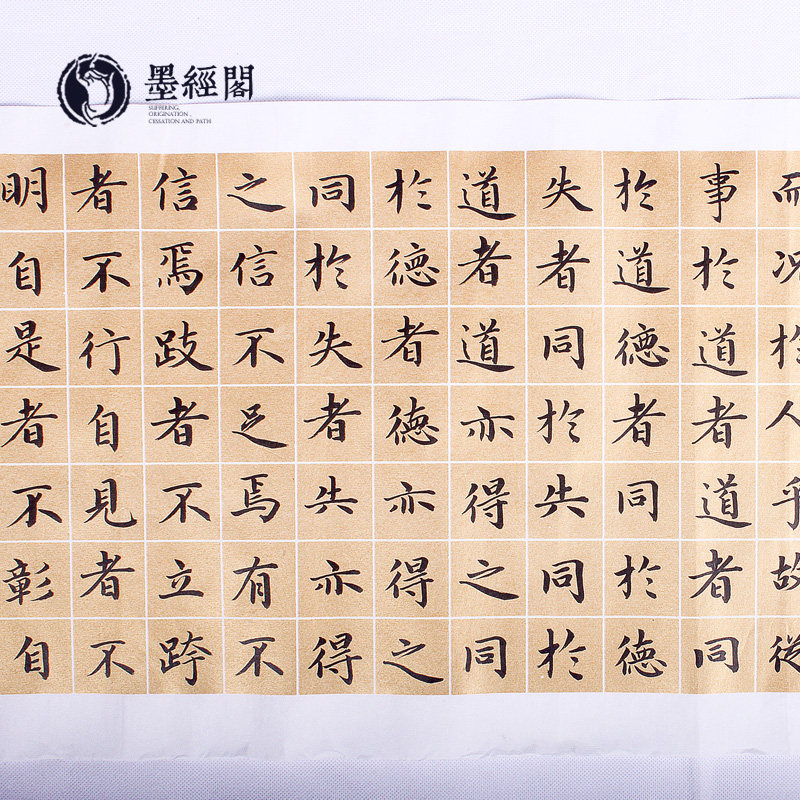 墨經閣
SUFFERING,
ORIGINATION,
CESSATION AND PATH
而况於人乎故從
事於道者道者同
於道德者同於德
失者同於失同於
道者道亦得之同
於德者德亦得之
同於失者失亦得
之信不足焉有不
信焉跂者不立跨
者不行自見者不
明自是者不彰自